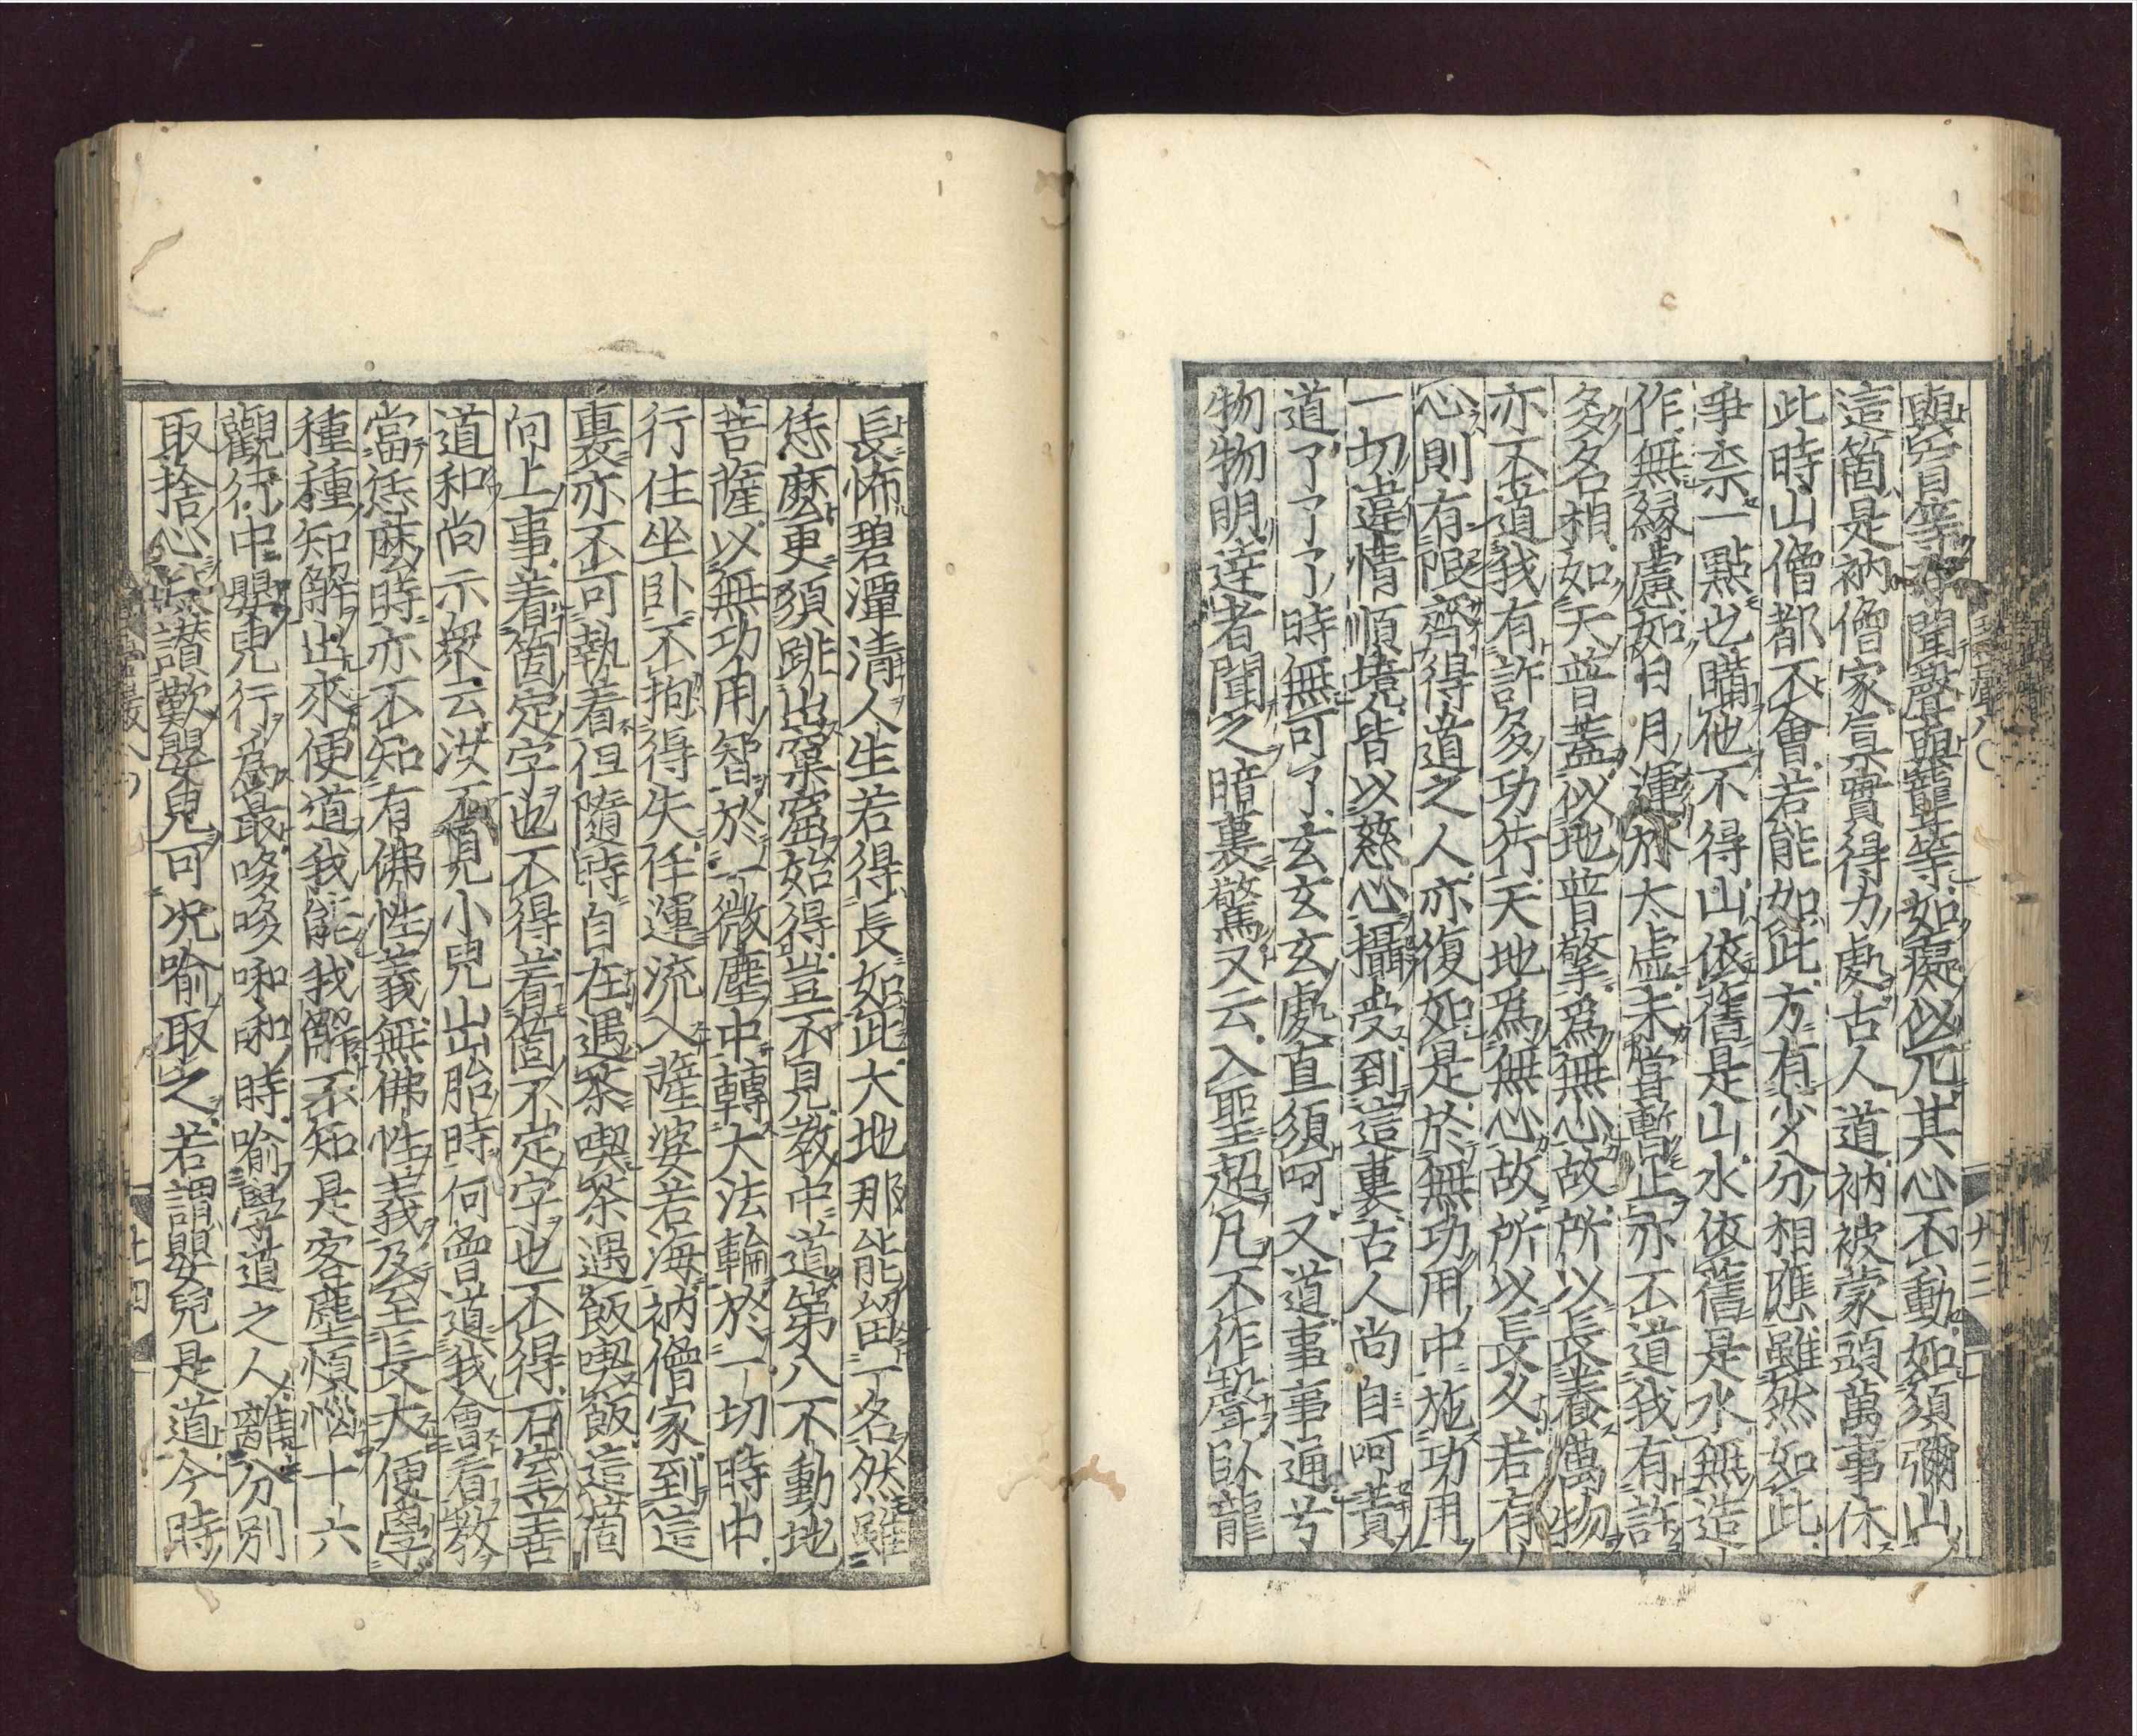 與盲等聞聲與聾等如癡似兀其心不動如須彌山
這箇是衲僧家真實得力處古人道衲被蒙頭萬事休
此時山僧都不會若能如此方有少分相應雖然如此
爭柰一點也瞞他不得山依舊是山水依舊是水無造
作無縁慮如日月運於太虛未嘗暫止亦不道我有許
多名相如天普蓋似地普擎爲無心故所以長養萬物
亦不道我有許多功行天地爲無心故所以長久若有
心則有限齊得道之人亦復如是於無功用中施功用
一切違情順境皆以慈心攝受到這裏古人尚自呵責
道了了了時無可了玄玄玄處直須呵又道事事通兮
物物明達者聞之暗裏驚又云入聖超凡不作聲臥龍
長怖碧潭清人生若得長如此大地那能留一名然雖
恁麽更須跳出窠窟始得豈不見教中道第八不動地
菩薩以無功用智於一微塵中轉大法輪於一切時中
行住坐卧不拘得失任運流入薩婆若海衲僧家到這
裏亦不可執着但隨時自在遇茶喫茶遇飯喫飯這箇
向上事着箇定字也不得着箇不定字也不得石室善
道和尚示衆云汝不見小兒出胎時何曾道我會看教
當恁麽時亦不知有佛性義無佛性義及至長大便學
種種知解出來便道我能我解不知是客塵煩惱十六
觀行中嬰兒行爲最哆哆啝啝時喻學道之人離分別
取捨心故讃歎嬰兒可况喻取之若謂嬰兒是道今時